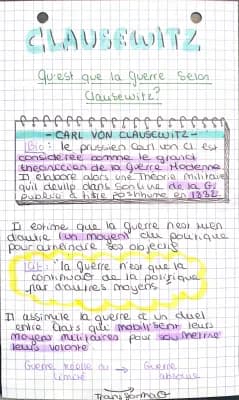 CLAUSEWITZ
Qu'est que la Guerre Selon
Clausewitz?
- CARL VON CLAUSEWITZ -
Bio: le prussien Carl von Cl. est
considérée comme le grand
théoricien de la Guerre Moderne.
Il élabore alors une Théorie Militaire
qu'il dévlp dans son livre de la G
publié à titre posthume en 1832.
Il estime que la Guerre n'est rien
d'autre qu'un moyen du politique
pour atteindre ses objectifs
Cit: "la Guerre n'est que la
continuation de la politique
par d'autres moyens"
Il assimile la guerre à un duel
entre États qui mobilisent leurs
moyens militaires pour soumettre
leurs volonté.
Guerre réelle ou → Guerre
limitée absolue
Transforma